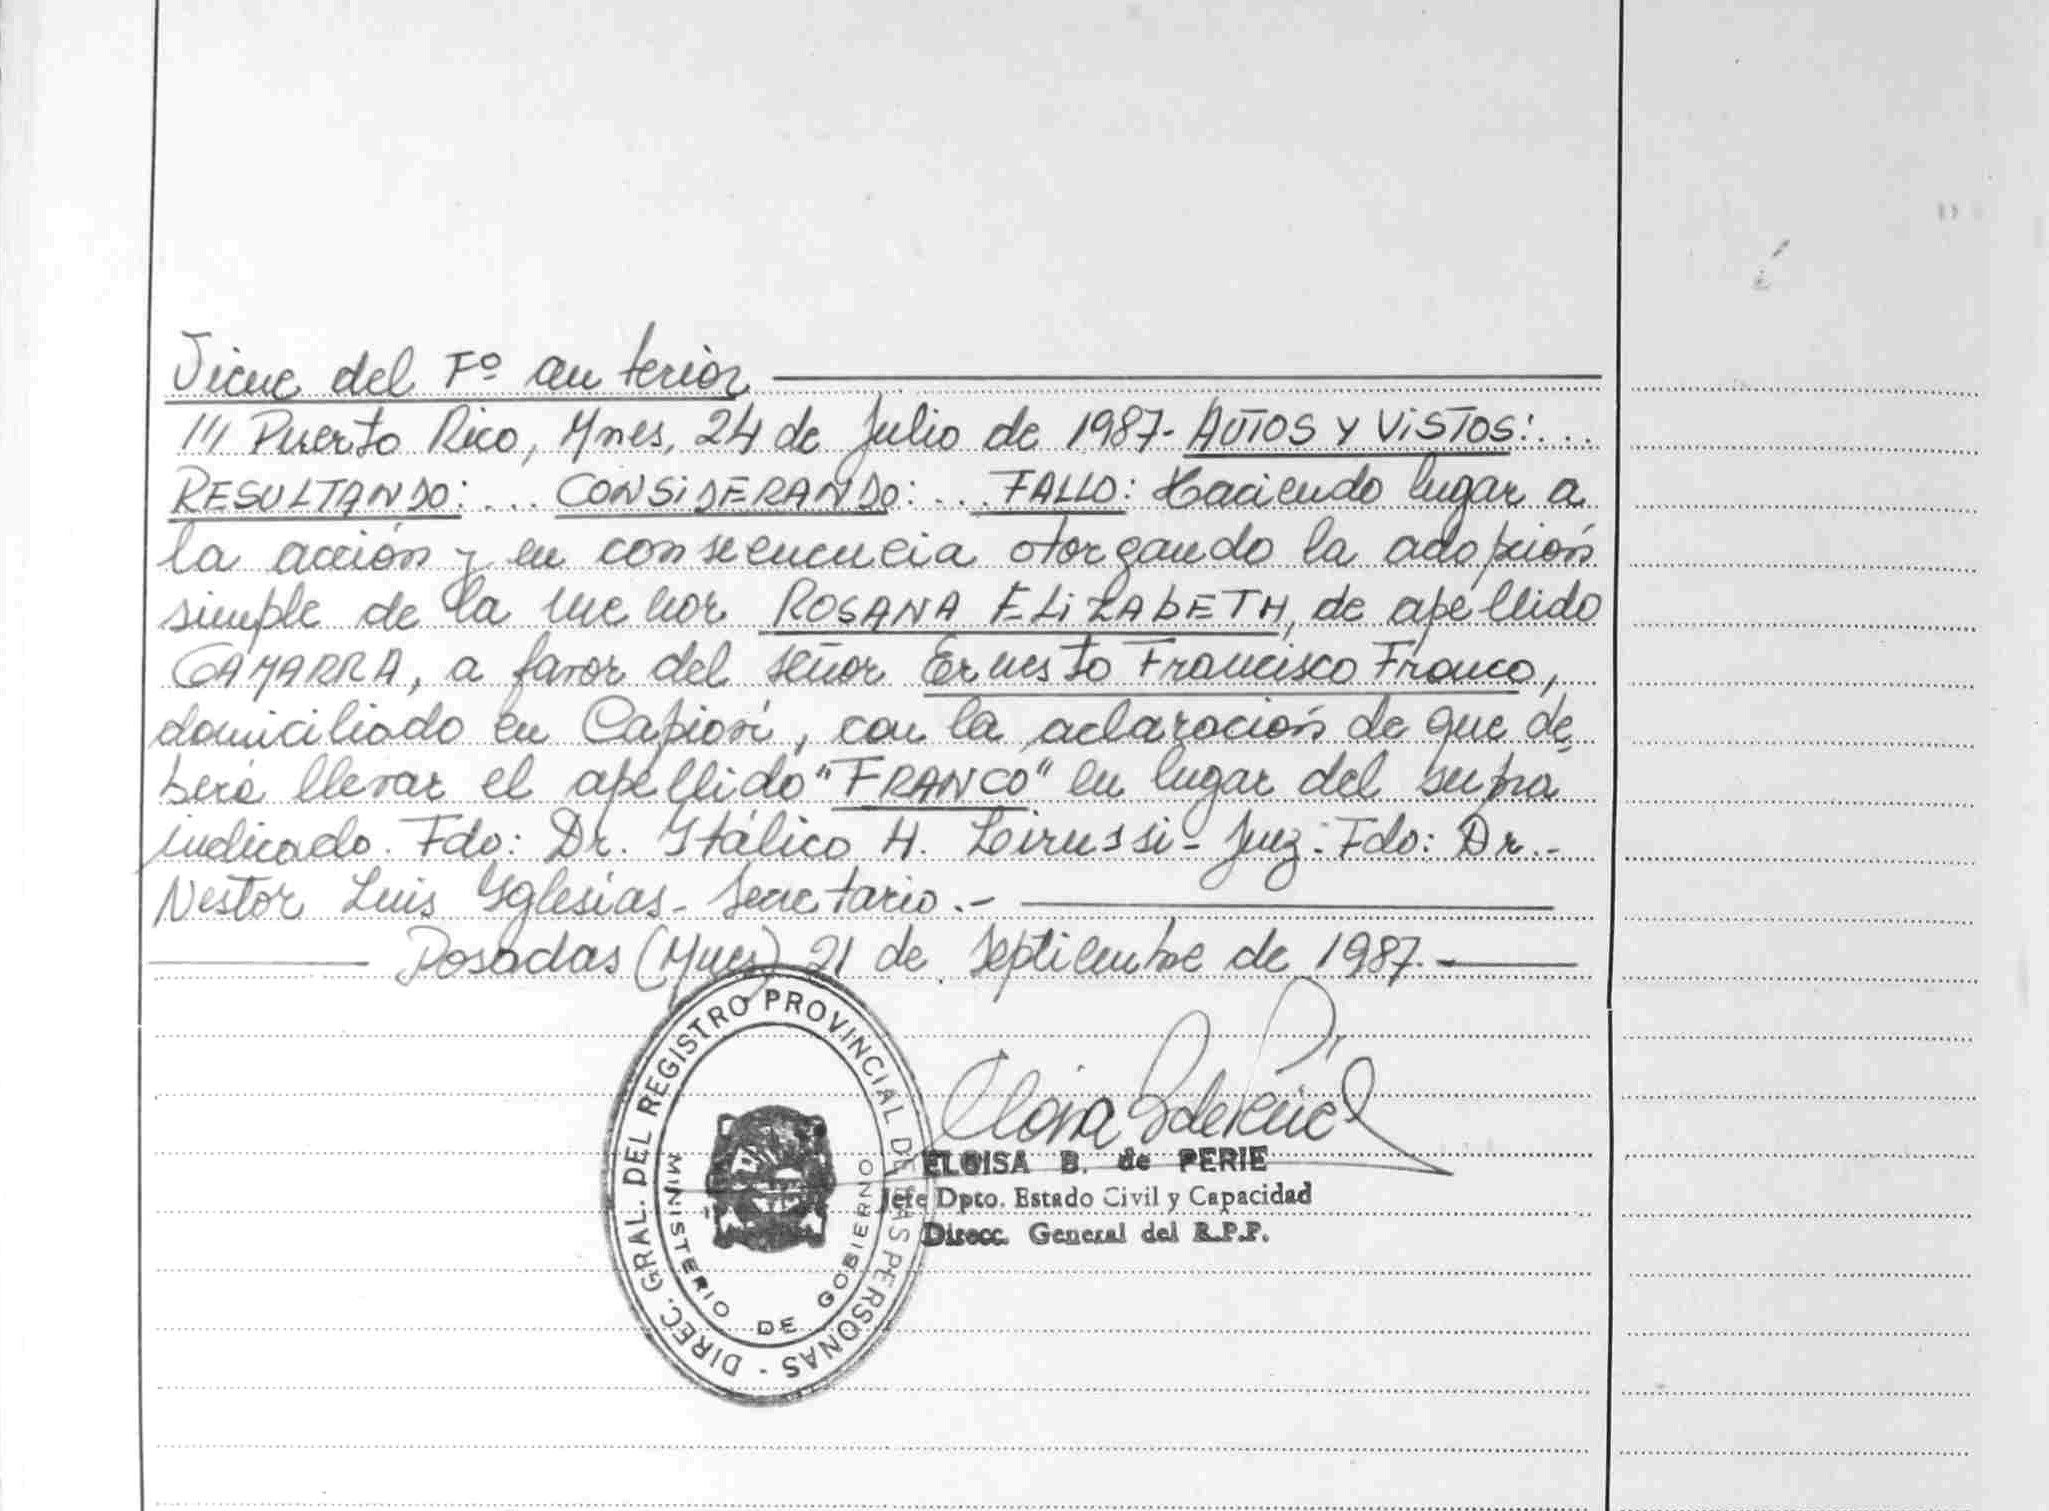 Viene del Fº anterior
/// Puerto Rico, Mnes, 24 de Julio de 1987- AUTOS Y VISTOS:...
RESULTANDO:... CONSIDERANDO:... FALLO: Haciendo lugar a
la acción y en consecuencia otorgando la adopción
simple de la menor ROSANA ELIZABETH, de apellido
GAMARRA, a favor del señor Ernesto Francisco Franco,
domiciliado en Capioví, con la aclaración de que de
berá llevar el apellido "FRANCO" en lugar del supra
indicado. Fdo: Dr. Itálico H. - Juez - Fdo: Dr.-
Nestor Luis Yglesias - Secretario.-
Posadas (Mnes) 21 de Septiembre de 1987.-
DIREC. GRAL. DEL REGISTRO PROVINCIAL DE LAS PERSONAS -
MINISTERIO DE GOBIERNO
ELOISA B. de PERIE
Jefe Dpto. Estado Civil y Capacidad
Direcc. General del R.P.P.